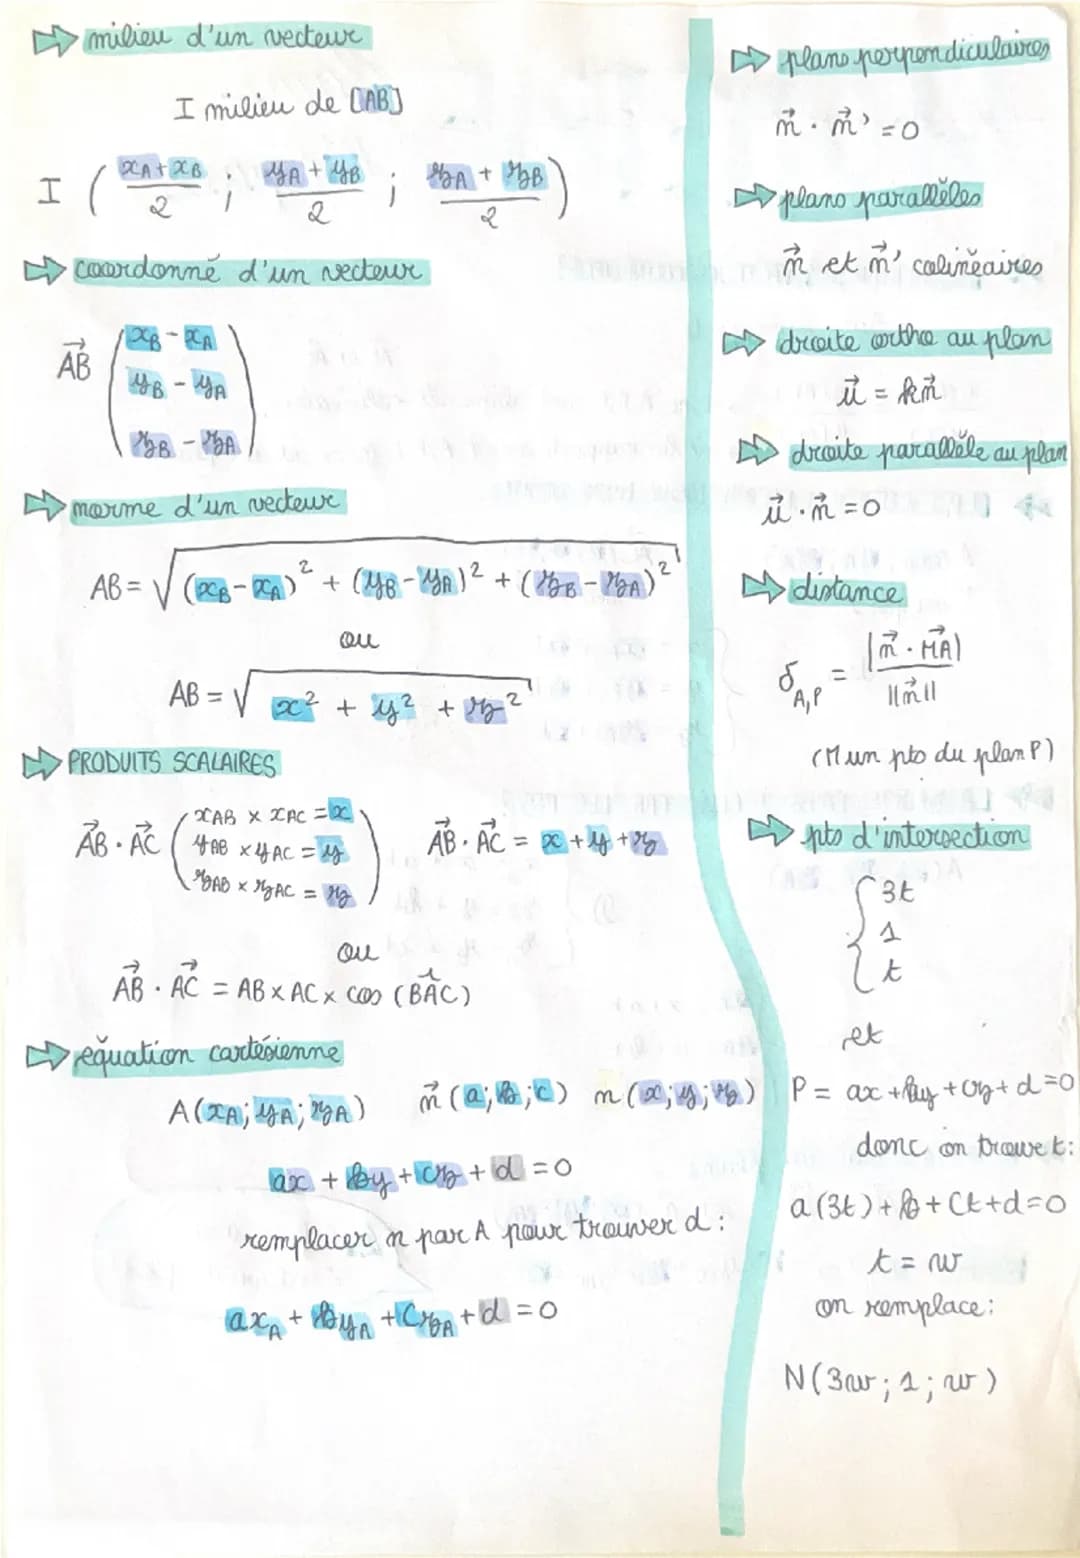 milieu d'un vecteur
I milieu de [AB]
I ( (xA + xB)/2 ; (yA + yB)/2 ; (zA + zB)/2 )
coordonné d'un vecteur
AB→ ( xB - xA
yB - yA
zB - zA )
norme d'un vecteur
AB = √((xB - xA)² + (yB - yA)² + (zB - zA)²)
ou
AB = √(x² + y² + z²)
PRODUITS SCALAIRES
AB→ · AC→ ( xAB × xAC = x
yAB × yAC = y
zAB × zAC = z )
AB→ · AC→ = x + y + z
ou
AB→ · AC→ = AB × AC × cos (BAC)
équation cartésienne
A(xA; yA; zA) n→ (a; b; c) n (x; y; z)
ax + by + cz + d = 0
remplacer n par A pour trouver d :
axA + byA + CzA + d = 0
plans perpendiculaires
n→ · n→' = 0
plans parallèles
n→ et n→' colinéaires
droite ortho au plan
u→ = kn→
droite parallèle au plan
u→ · n→ = 0
distance
δA,P = |n→ · MA→| / ||n→||
(M un pts du plan P)
pts d'intersection
{ 3t
1
t
et
P = ax + by + cz + d = 0
donc on trouve t :
a(3t) + b + Ct + d = 0
t = w
on remplace :
N(3w ; 1 ; w)